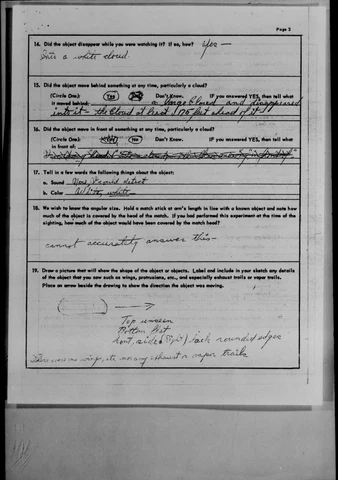 Page 3
14. Did the object disappear while you were watching it? If so, how? Yes —
Into a white cloud.
15. Did the object move behind something at any time, particularly a cloud?
(Circle One): Yes No Don't Know. IF you answered YES, then tell what
it moved behind: a large cloud and disappeared
into it - the cloud at least 175 feet ahead of it
16. Did the object move in front of something at any time, particularly a cloud?
(Circle One): Yes No Don't Know. IF you answered YES, then tell what
in front of:
17. Tell in a few words the following things about the object:
a. Sound None I could detect
b. Color All white
18. We wish to know the angular size. Hold a match stick at arm's length in line with a known object and note how
much of the object is covered by the head of the match. If you had performed this experiment at the time of the
sighting, how much of the object would have been covered by the match head?
cannot accurately answer this —
19. Draw a picture that will show the shape of the object or objects. Label and include in your sketch any details
of the object that you saw such as wings, protrusions, etc., and especially exhaust trails or vapor trails.
Place an arrow beside the drawing to show the direction the object was moving.
Top unseen
Bottom flat
sides (Right) back rounded edges
There were no wings, etc nor any exhaust or vapor trails